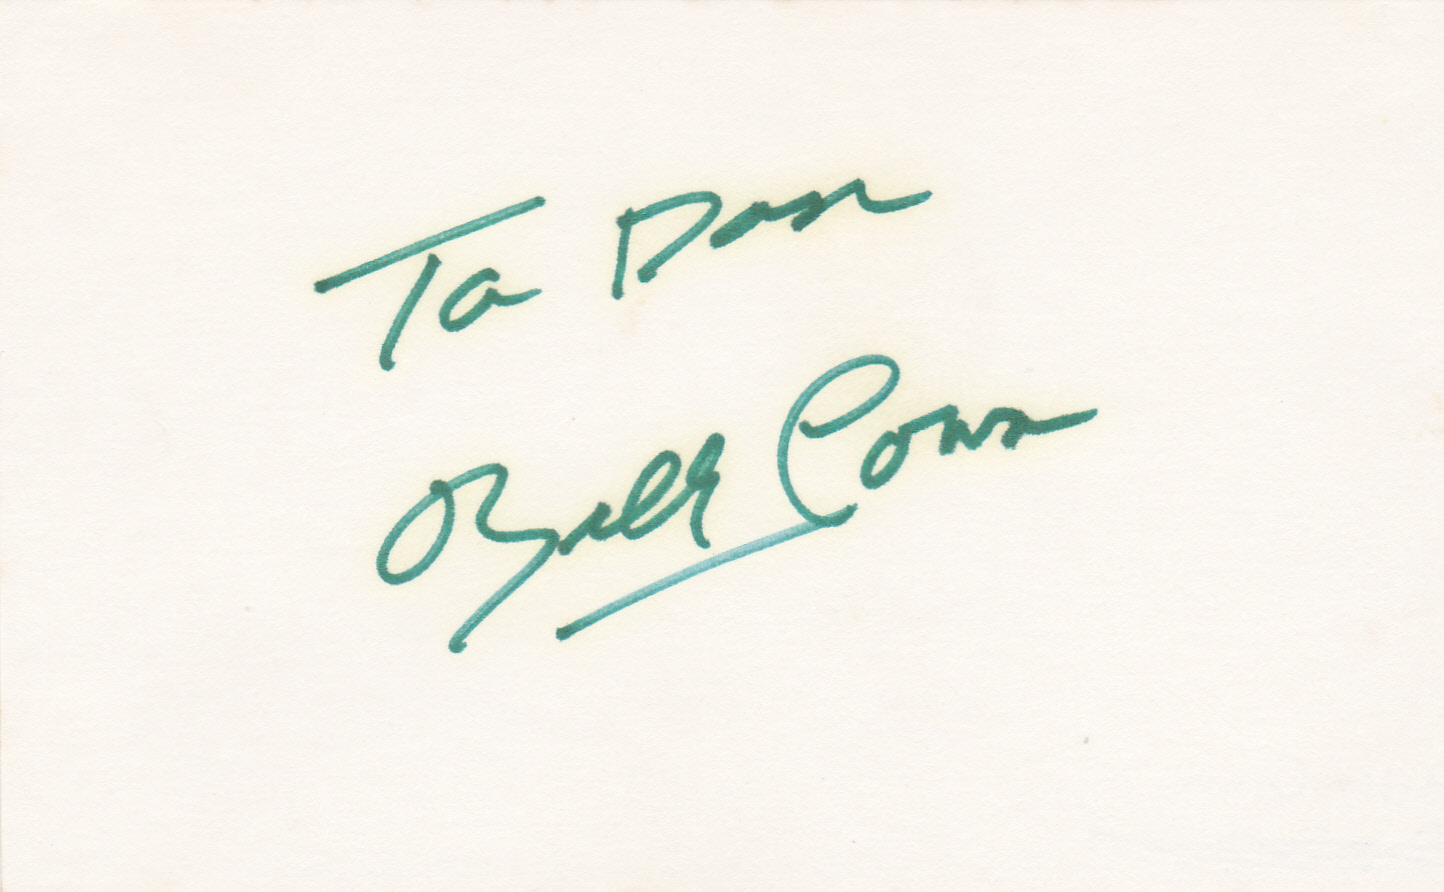 To Dan
Billy Conn